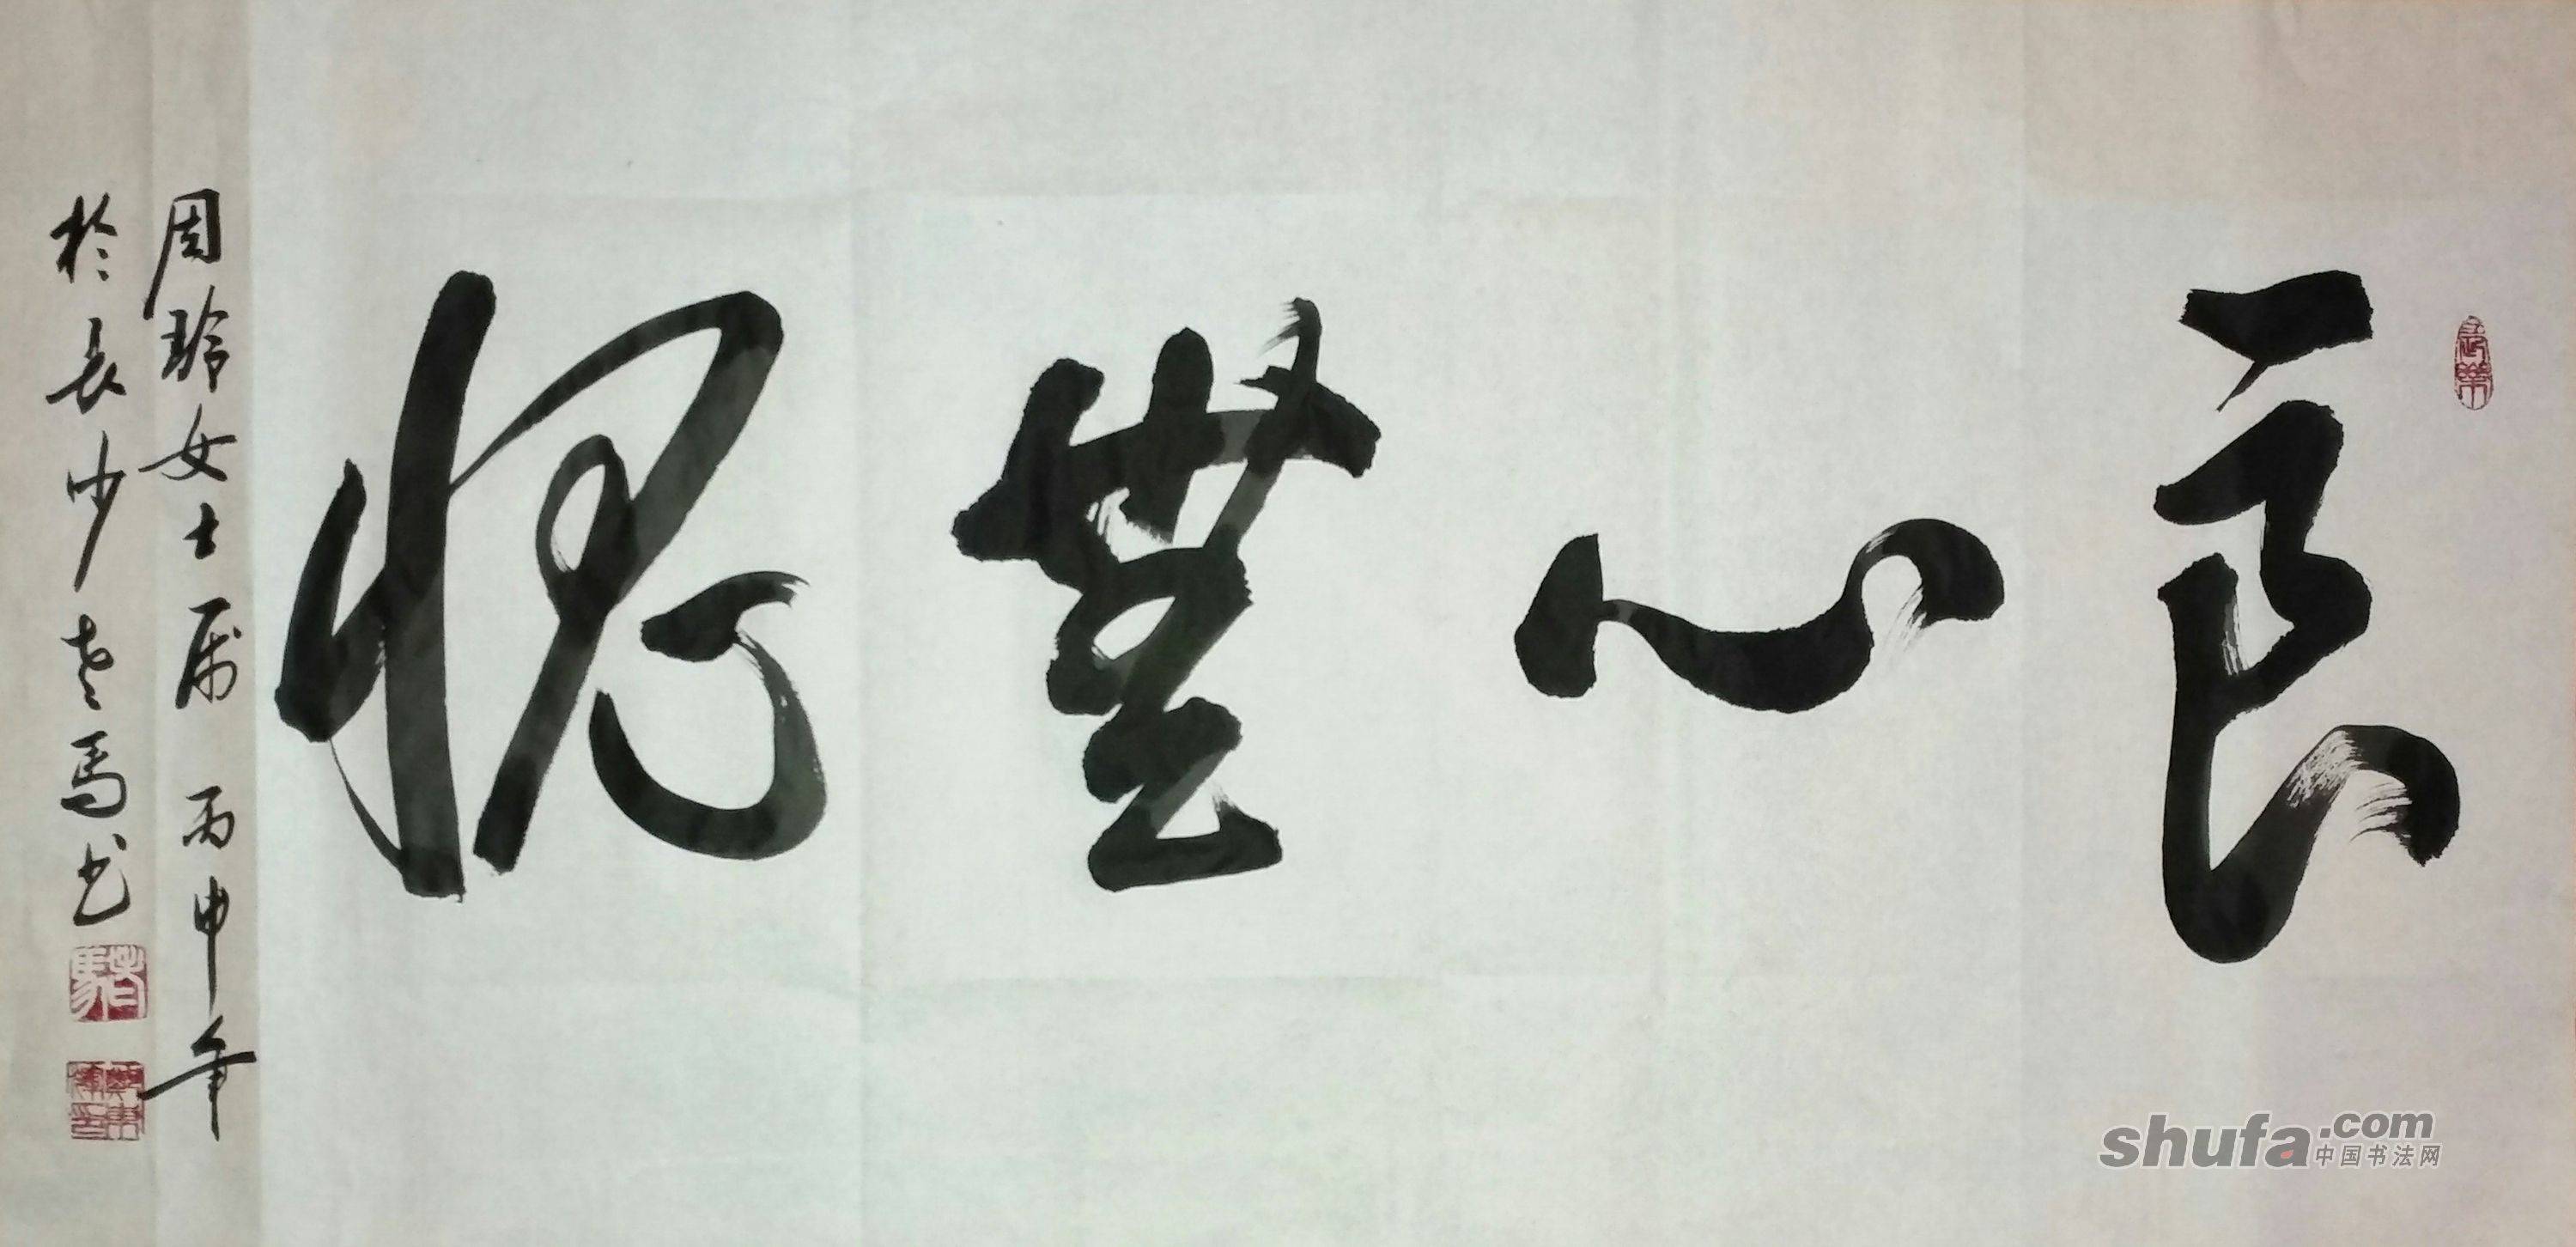 良心無愧
周玲女士属 丙申年
於長沙老馬书
shufa.com
中国书法网